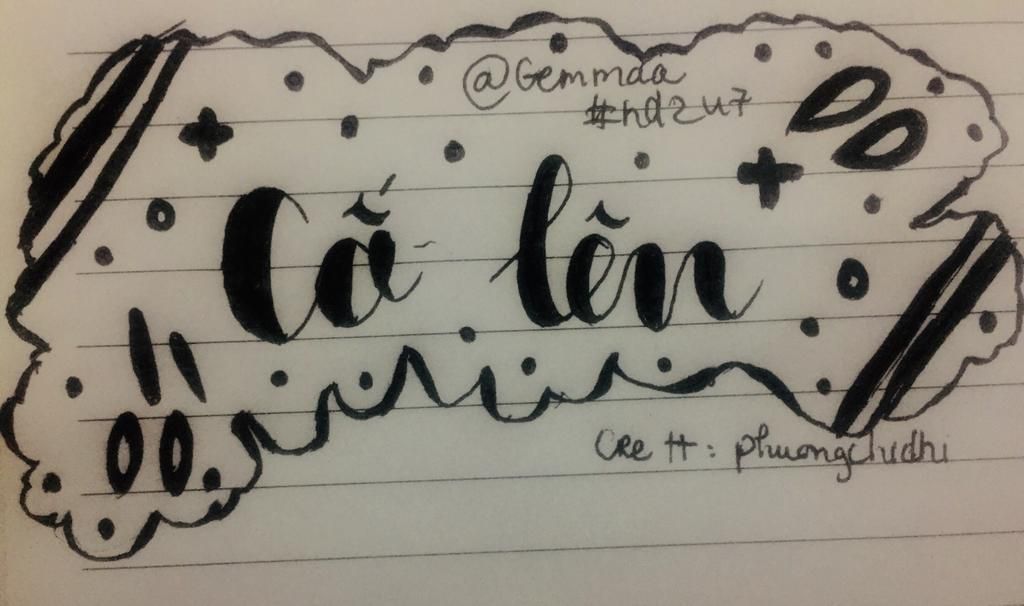 @Gemmda
#nd2u7
Cố lên
Cre tt: phuongchidhi